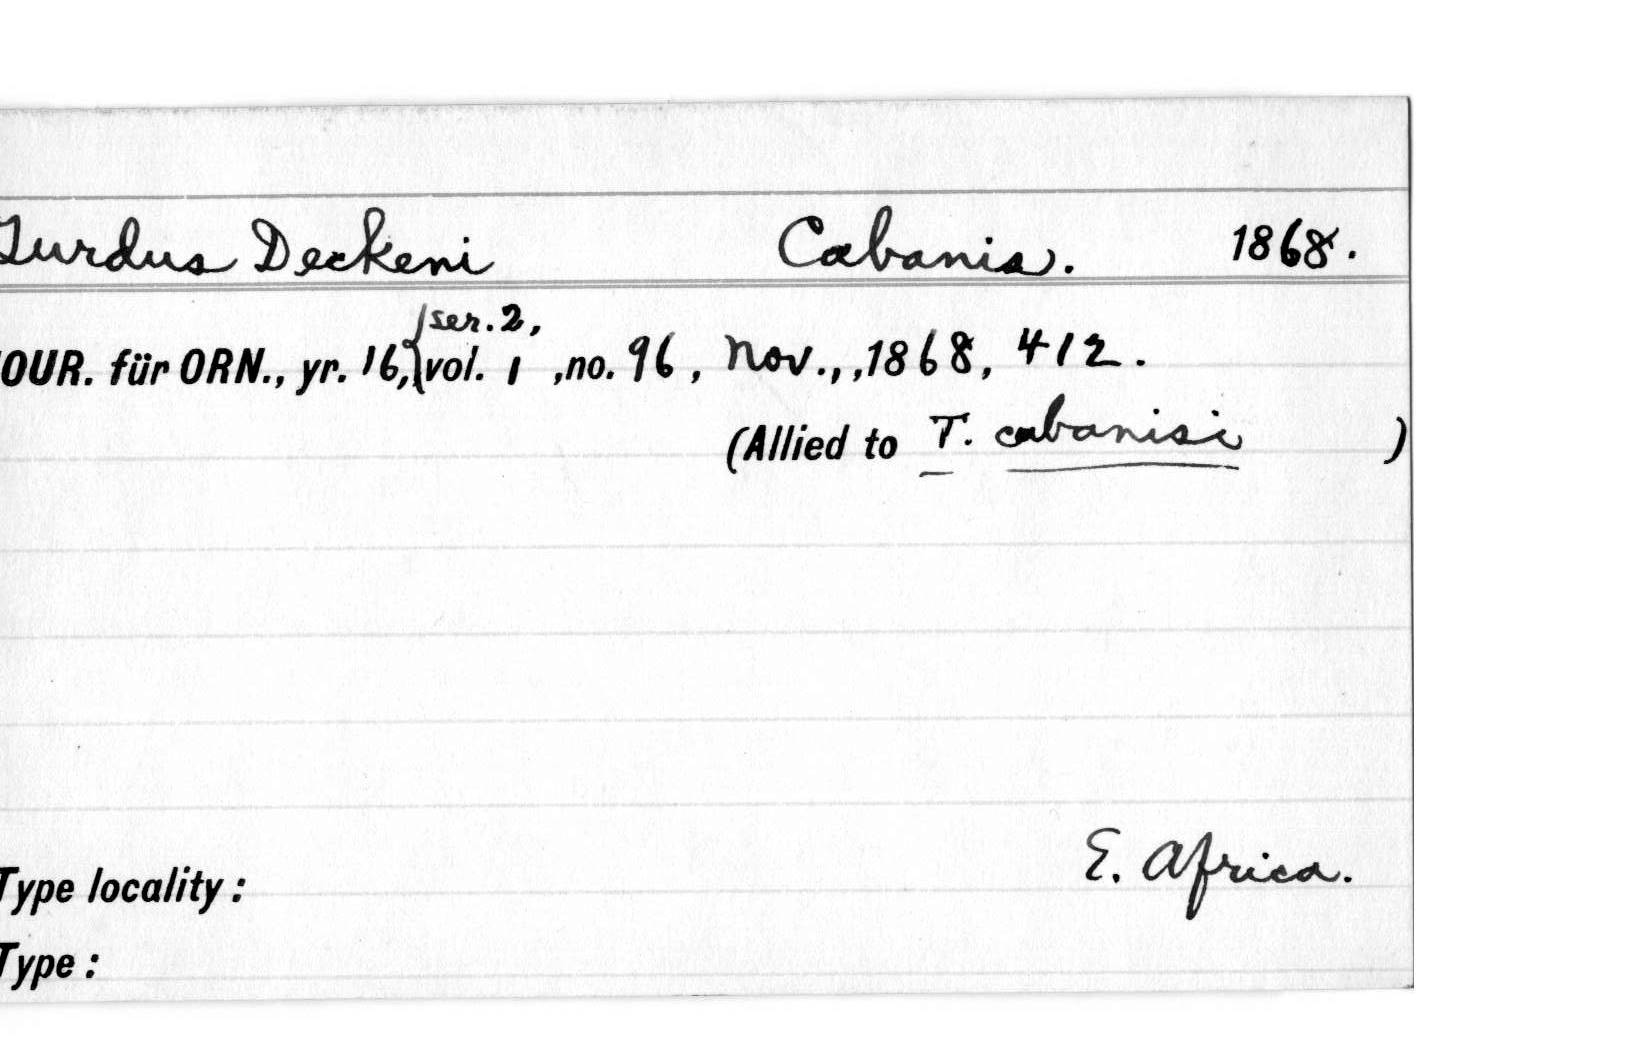 Turdus Deckeni Cabanis. 1868.
ser. 2,
OUR. für ORN., yr. 16, {vol. 1 ,no. 96, Nov.,,1868, 412.
(Allied to T. cabanisi )
Type locality: E. Africa.
Type: